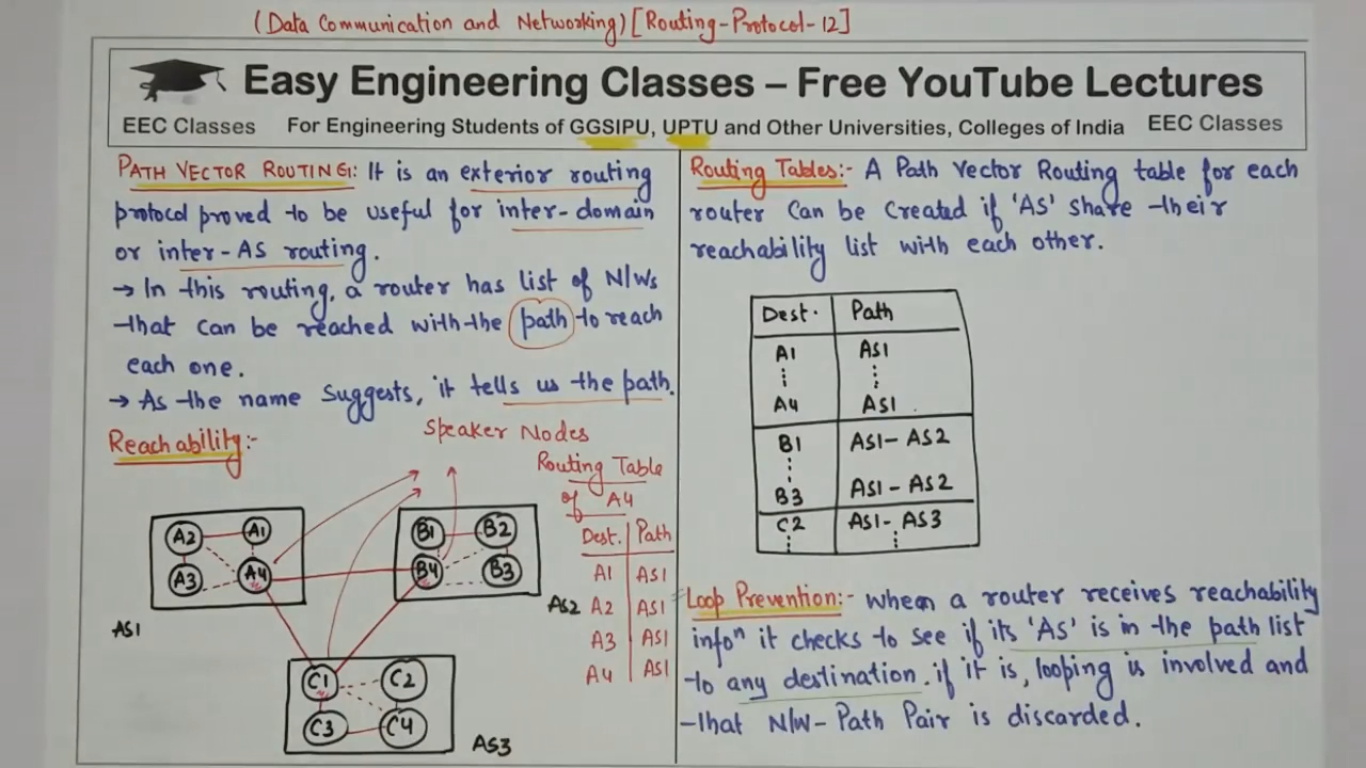 (Data Communication and Networking) [Routing-Protocol-12]
Easy Engineering Classes – Free YouTube Lectures
EEC Classes For Engineering Students of GGSIPU, UPTU and Other Universities, Colleges of India EEC Classes
PATH VECTOR ROUTING: It is an exterior routing
protocol proved to be useful for inter-domain
or inter-AS routing.
→ In this routing, a router has list of N/Ws
that can be reached with the path to reach
each one.
→ As the name suggests, it tells us the path.
Reachability:-
Speaker Nodes
A2 A1
A3 A4
AS1
B1 B2
B4 B3
AS2
C1 C2
C3 C4
AS3
Routing Table
of A4
Dest. Path
A1 AS1
A2 AS1
A3 AS1
A4 AS1
Routing Tables:- A Path Vector Routing table for each
router can be created if 'AS' share their
reachability list with each other.
Dest. Path
A1 AS1
A4 AS1
B1 AS1- AS2
B3 AS1 - AS2
C2 AS1- AS3
Loop Prevention:- When a router receives reachability
infoⁿ it checks to see if its 'AS' is in the path list
to any destination. if it is, looping is involved and
that N/W-Path Pair is discarded.